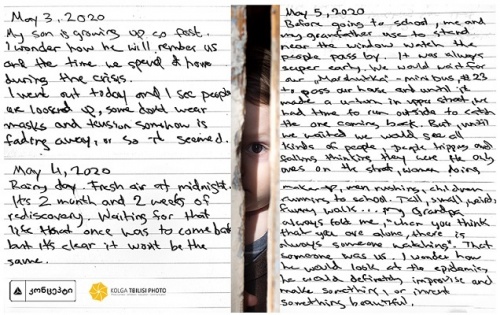 May 3, 2020
My son is growing up so fast.
I wonder how he will rember us
and the time we spend @ home
during the crisis.
I went out today and I see people
are loosend up, some dont wear
masks and tension somehow is
fading away, or so it seemed.
May 4, 2020
Rainy day. Fresh air at midnight.
It's 2 month and 2 weeks of
rediscovery. Waiting for that
life that once was to come back
but it's clear it wont be the
same.
კონცეპტი
KOLGA TBILISI PHOTO
May 5, 2020
Before going to school, me and
my grandfather use to stand
near the window watch the
people pass by. I was always
super early. We would wait for
our "Marshrutka" - minibus, #23
to pass our house and until it
made a u-turn in upper street, we
had time to run outside to catch
the one coming back. But until
we waited we would see all
kinds of people, people tripping and
falling thinking they were the only
ones on the street, women doing
make up, men rushing, children
running to school. Tall, small, weird,
funny walk... my Grandpa
always told me, "when you think
that you are alone, there is
always someone watching". That
someone was us. I wonder how
he would look at the epidemic,
he would definitely improvise and
make something, or invent
something beautiful.